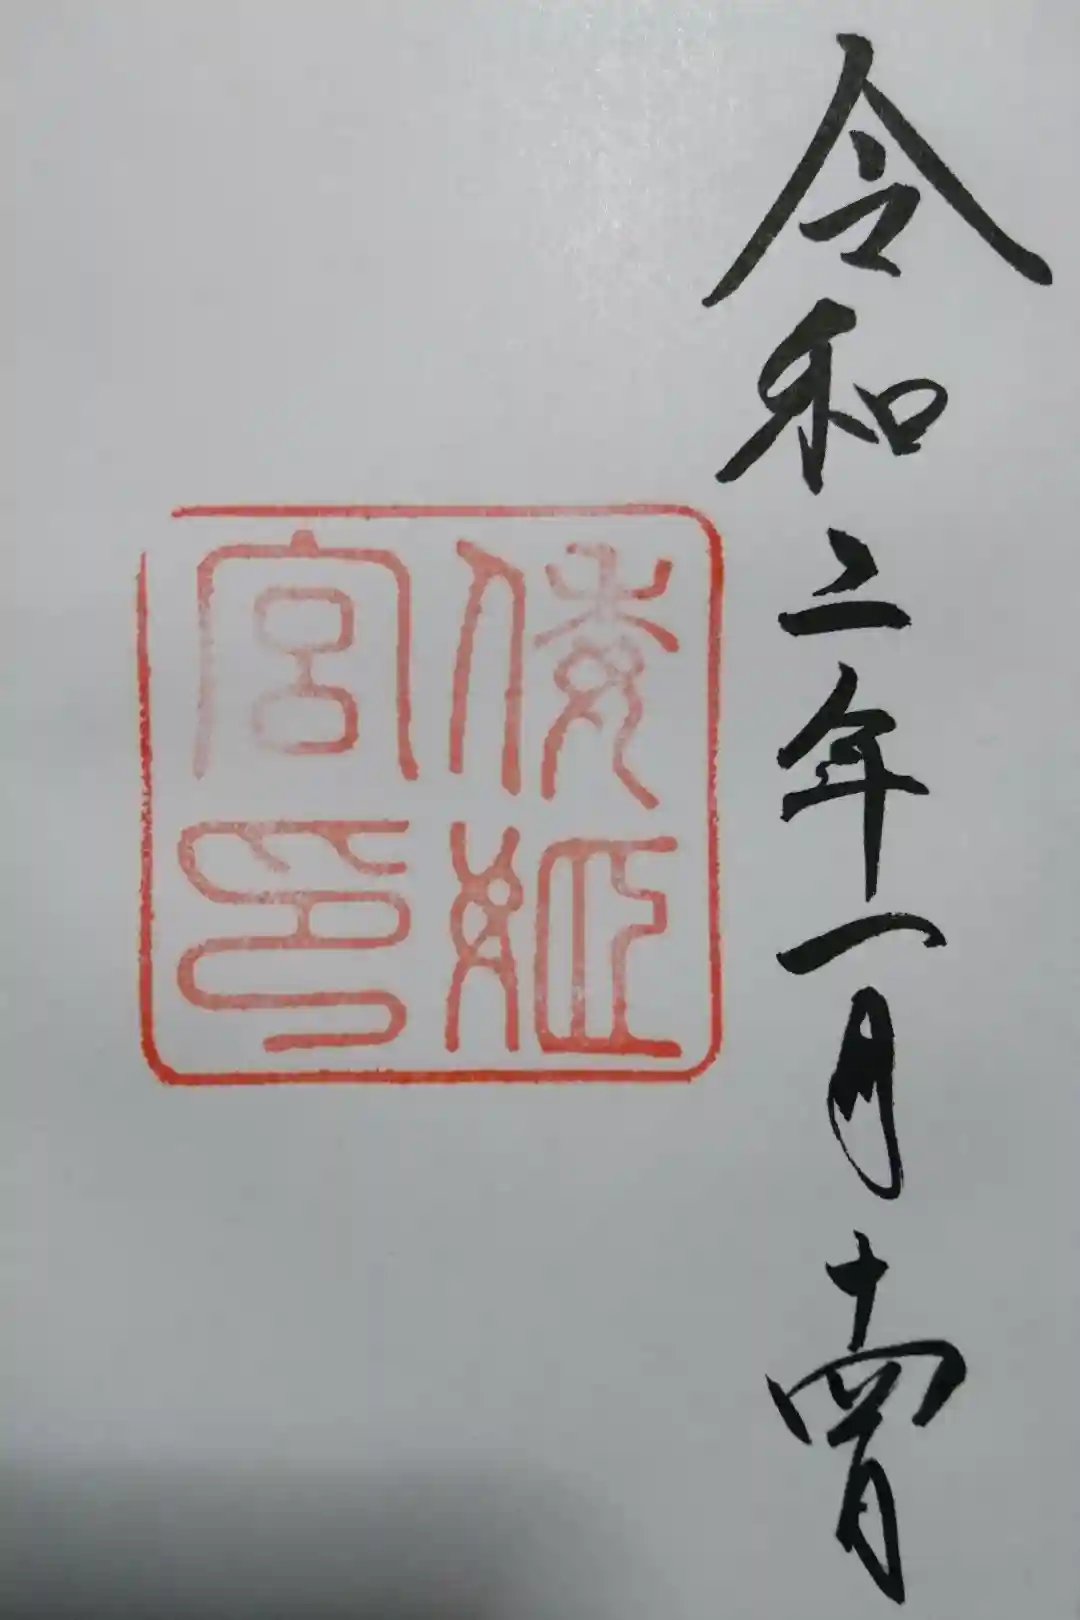 令和二年一月十四日
倭姫
宮印